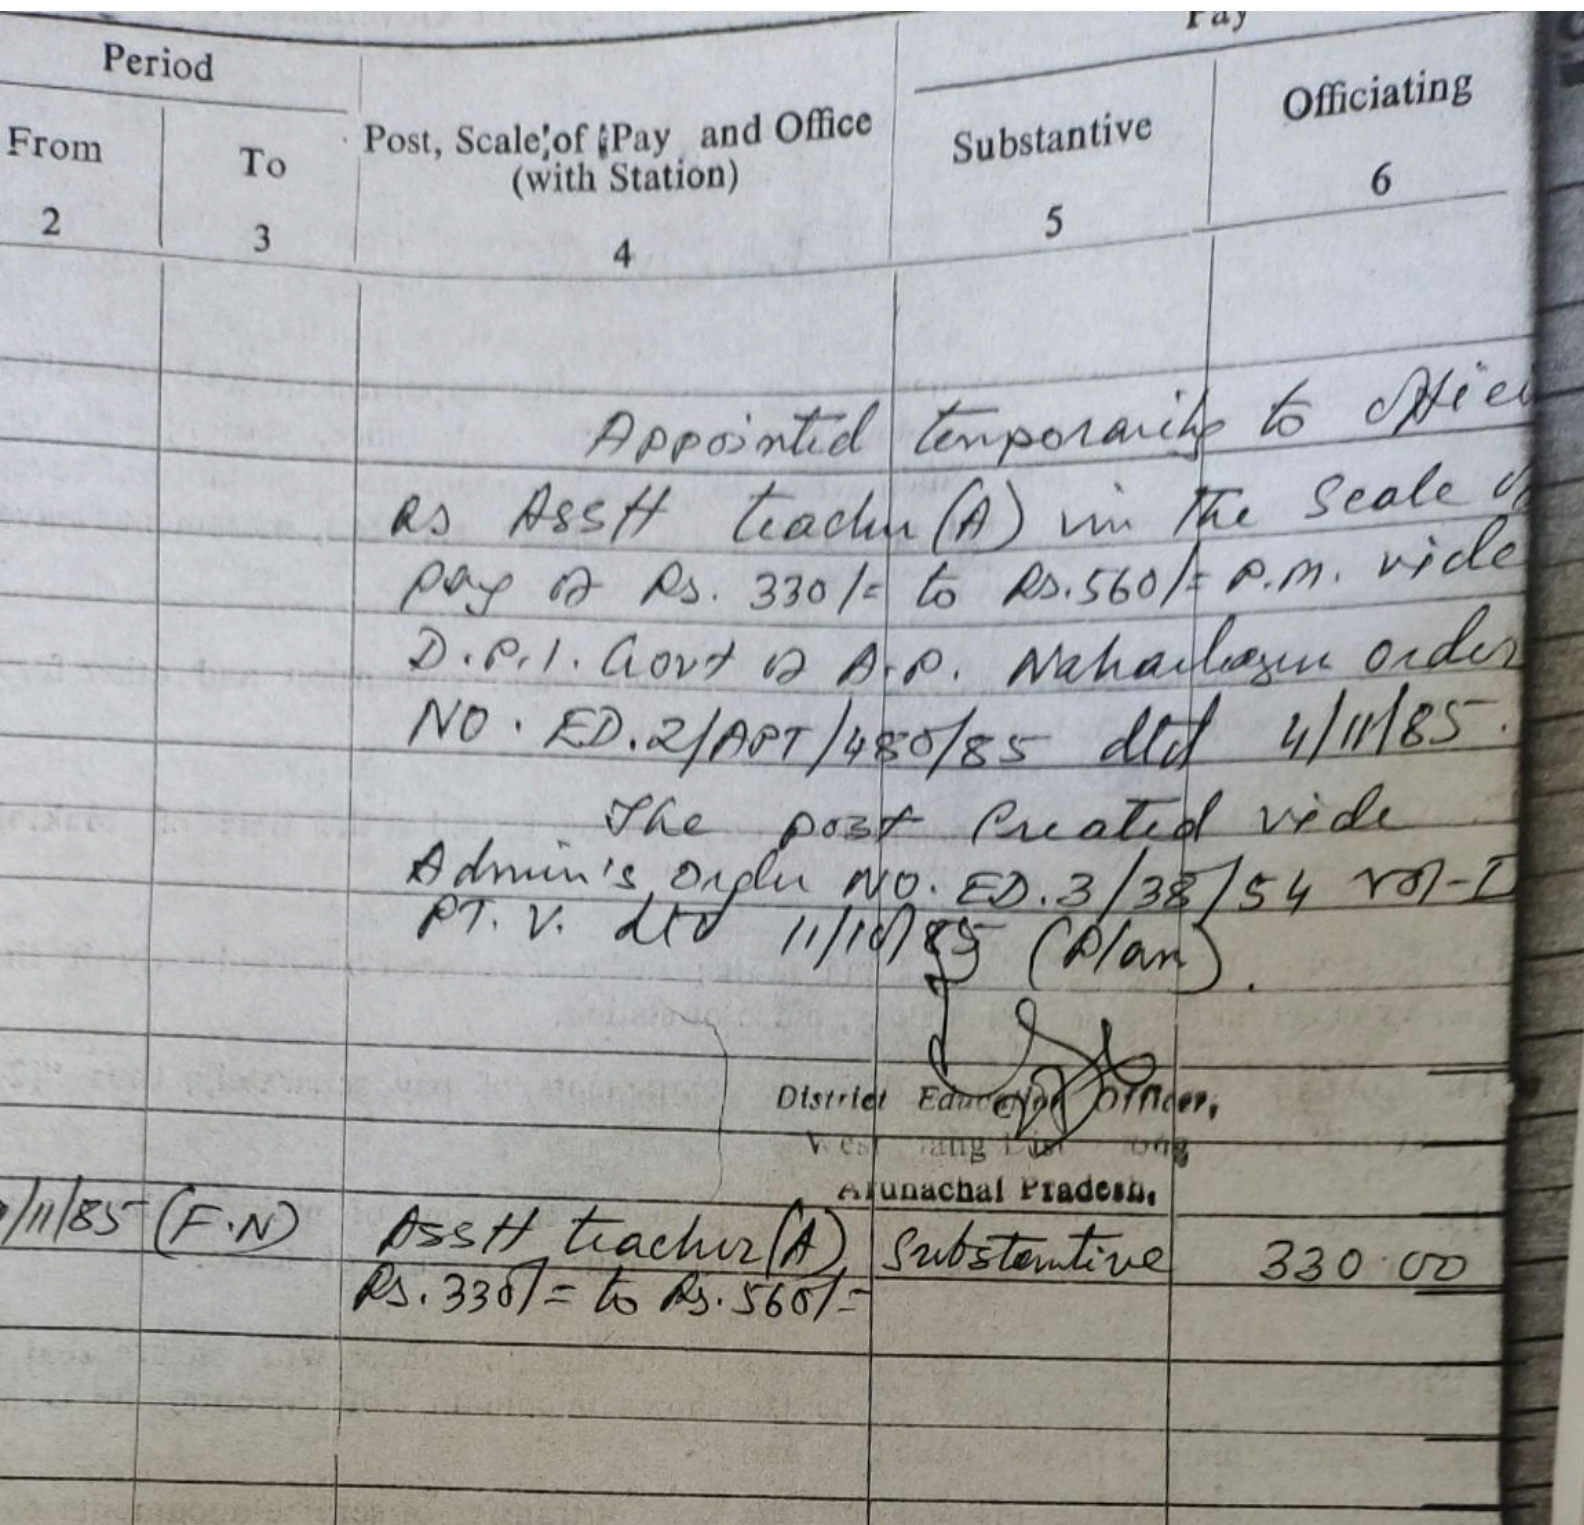 Pay
Period
Officiating
From
To
Post, Scale of Pay and Office
(with Station)
Substantive
2
3
4
5
6
Appointed temporarily to
as Asstt teacher (A) in the Scale of
pay of Rs. 330/= to Rs.560/= P.M. vide
D.P.I. Govt of A.P. Naharlagun order
NO. ED.2/APT/480/85 dtd 4/11/85.
The post Created vide
Admin's Order NO. ED.3/38/54 Vol-I
PT. V. dtd 11/10/85 (Plan).
District Education Officer,
Arunachal Pradesh.
/11/85 (F.N) Asstt teacher (A) Substantive 330.00
Rs. 330/= to Rs. 560/=